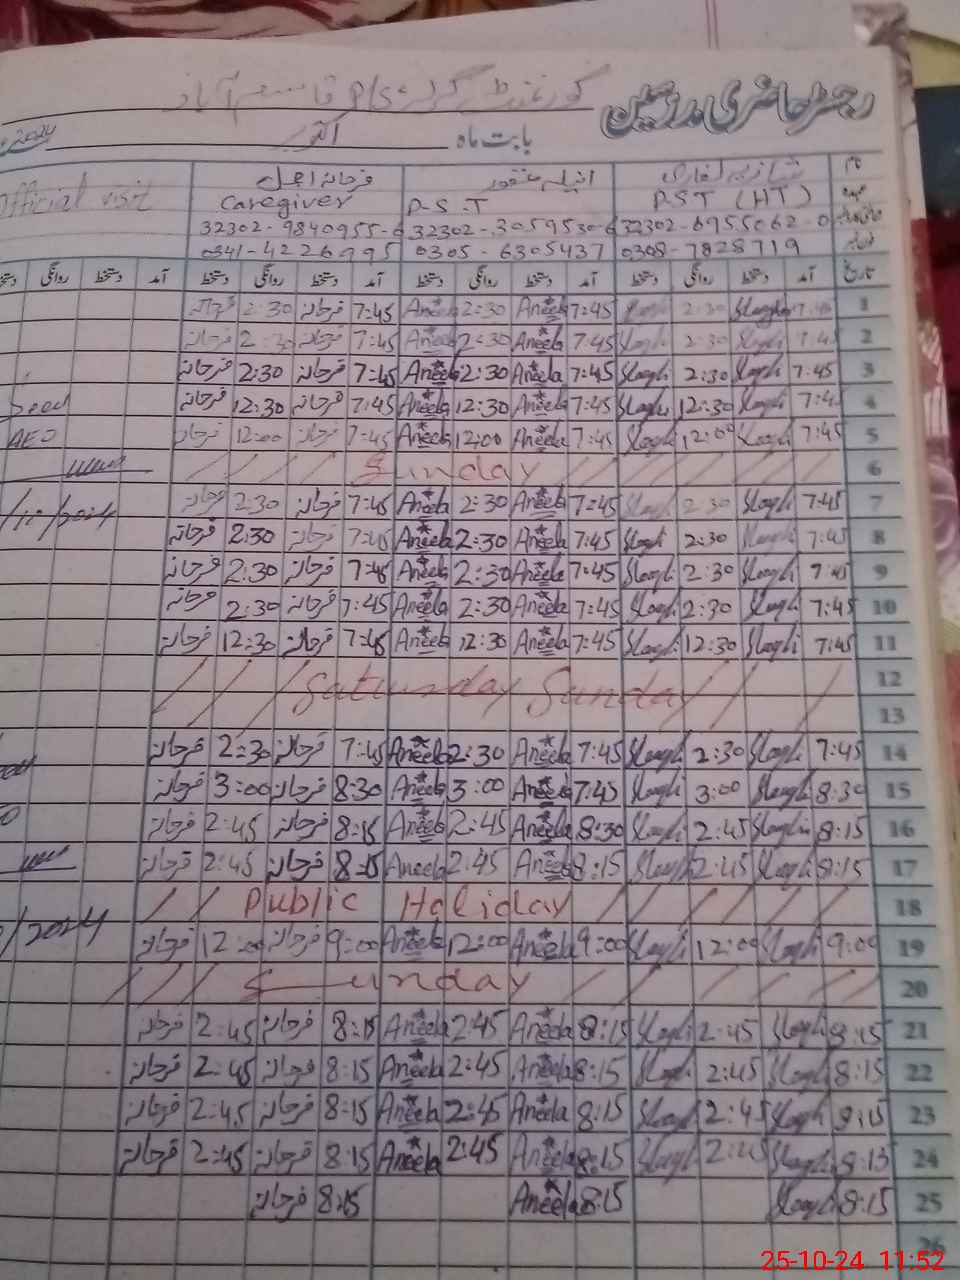 رجسٹر حاضری مدرسین
گورنمنٹ گرلز P/S قاسم آباد
بابت ماہ اکتوبر 2024
نام
فرحانہ اجمل
Official visit
PST (HT) P-S-T Caregiver
32302-6955062-0 32302-3059530-6 32302-9840955-6
0308-7828719 0305-6305437 0341-4226995
تاریخ آمد دستخط روانگی دستخط آمد دستخط روانگی دستخط آمد دستخط روانگی دستخط آمد دستخط روانگی دستخط
1 7:45 Slaghi 2:30 Slaghi 7:45 Aneela 2:30 Aneela 7:45 فرحانہ 2:30 فرحانہ
2 7:45 Slaghi 2:30 Slaghi 7:45 Aneela 2:30 Aneela 7:45 فرحانہ 2:30 فرحانہ
3 7:45 Slaghi 2:30 Slaghi 7:45 Aneela 2:30 Aneela 7:45 فرحانہ 2:30 فرحانہ
4 7:45 Slaghi 12:30 Slaghi 7:45 Aneela 12:30 Aneela 7:45 فرحانہ 12:30 فرحانہ
5 7:45 Slaghi 12:00 Slaghi 7:45 Aneela 12:00 Aneela 7:45 فرحانہ 12:00 فرحانہ AEO
6 Sunday
7 7:45 Slaghi 2:30 Slaghi 7:45 Aneela 2:30 Aneela 7:45 فرحانہ 2:30 فرحانہ /10/2024
8 7:45 Slaghi 2:30 Slaghi 7:45 Aneela 2:30 Aneela 7:45 فرحانہ 2:30 فرحانہ
9 7:45 Slaghi 2:30 Slaghi 7:45 Aneela 2:30 Aneela 7:45 فرحانہ 2:30 فرحانہ
10 7:45 Slaghi 2:30 Slaghi 7:45 Aneela 2:30 Aneela 7:45 فرحانہ 2:30 فرحانہ
11 7:45 Slaghi 12:30 Slaghi 7:45 Aneela 12:30 Aneela 7:45 فرحانہ 12:30 فرحانہ
12
Saturday Sunday
13
14 7:45 Slaghi 2:30 Slaghi 7:45 Aneela 2:30 Aneela 7:45 فرحانہ 2:30 فرحانہ
15 8:30 Slaghi 3:00 Slaghi 7:45 Aneela 3:00 Aneela 8:30 فرحانہ 3:00 فرحانہ
16 8:15 Slaghi 2:45 Slaghi 8:30 Aneela 2:45 Aneela 8:15 فرحانہ 2:45 فرحانہ
17 8:15 Slaghi 2:45 Slaghi 8:15 Aneela 2:45 Aneela 8:15 فرحانہ 2:45 فرحانہ
18 Public Holiday
19 9:00 Slaghi 12:00 Slaghi 9:00 Aneela 12:00 Aneela 9:00 فرحانہ 12:00 فرحانہ /2024
20 Sunday
21 8:15 Slaghi 2:45 Slaghi 8:15 Aneela 2:45 Aneela 8:15 فرحانہ 2:45 فرحانہ
22 8:15 Slaghi 2:45 Slaghi 8:15 Aneela 2:45 Aneela 8:15 فرحانہ 2:45 فرحانہ
23 8:15 Slaghi 2:45 Slaghi 8:15 Aneela 2:45 Aneela 8:15 فرحانہ 2:45 فرحانہ
24 8:15 Slaghi 2:45 Slaghi 8:15 Aneela 2:45 Aneela 8:15 فرحانہ 2:45 فرحانہ
25 8:15 Slaghi 8:15 Aneela 8:15 فرحانہ
26
25-10-24 11:52